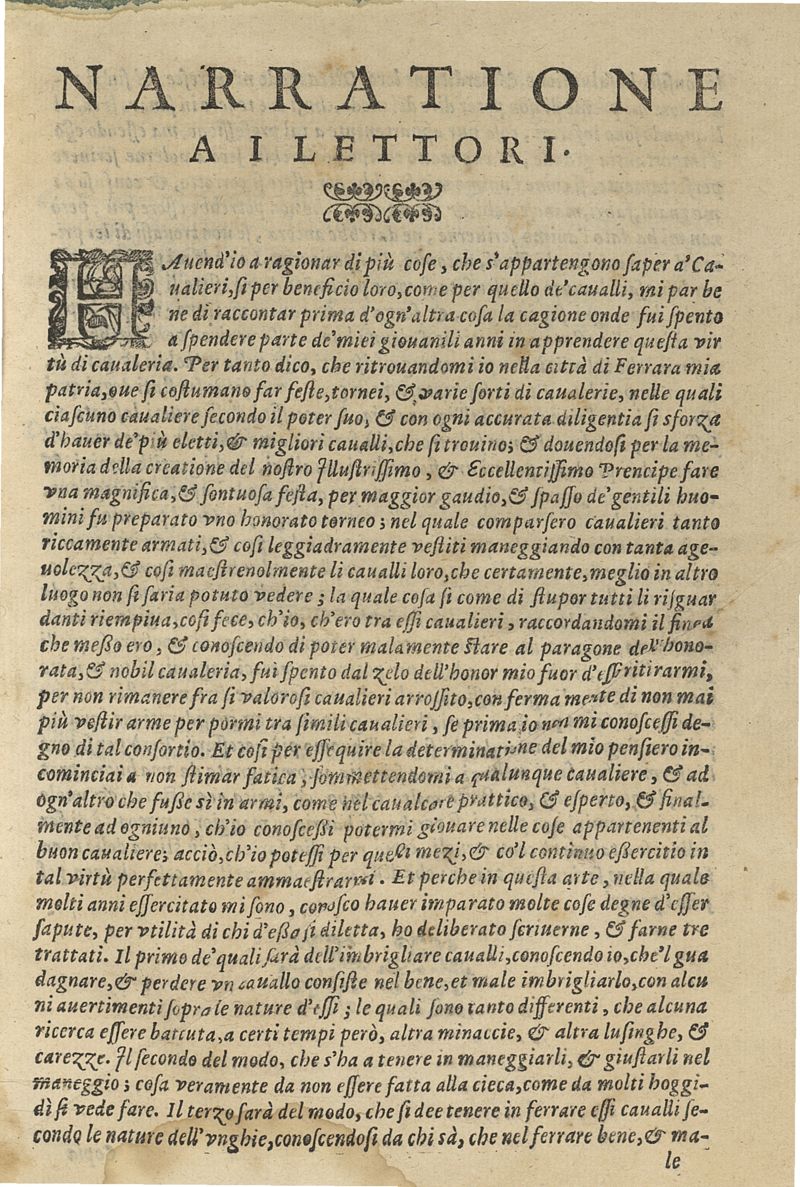 NARRATIONE
A I LETTORI.
HAuend'io a ragionar di più cose, che s'appartengono saper a' Ca-
ualieri, si per beneficio loro, come per quello de' caualli, mi par be
ne di raccontar prima d'ogn'altra cosa la cagione onde fui spento
a spendere parte de' miei giouanili anni in apprendere questa vir
tù di caualeria. Per tanto dico, che ritrouandomi io nella città di Ferrara mia
patria, oue si costumano far feste, tornei, & varie sorti di caualerie, nelle quali
ciascuno caualiere secondo il poter suo, & con ogni accurata diligentia si sforza
d'hauer de' più eletti, & migliori caualli, che si trouino; & douendosi per la me-
moria della creatione del nostro Illustrissimo, & Eccellentissimo Prencipe fare
vna magnifica, & sontuosa festa, per maggior gaudio, & spasso de' gentili huo-
mini fu preparato vno honorato torneo; nel quale comparsero caualieri tanto
riccamente armati, & cosi leggiadramente vestiti maneggiando con tanta age-
uolezza, & cosi maestrenolmente li caualli loro, che certamente, meglio in altro
luogo non si saria potuto vedere; la quale cosa si come di stupor tutti li risguar
danti riempiua, cosi fece, ch'io, ch'ero tra essi caualieri, raccordandomi il fine a
che meßo ero, & conoscendo di poter malamente stare al paragone dell'hono-
rata, & nobil caualeria, fui spento dal zelo dell'honor mio fuor d'essi ritirarmi,
per non rimanere fra si valorosi caualieri arrossito, con ferma mente di non mai
più vestir arme per pormi tra simili caualieri, se prima io non mi conoscessi de-
gno di tal consortio. Et cosi per essequire la determinatione del mio pensiero in-
cominciai a non stimar fatica, sommettendomi a qualunque caualiere, & ad
ogn'altro che fuße sì in armi, come nel caualcare prattico, & esperto, & final-
mente ad ogniuno, ch'io conosceßi potermi giouare nelle cose appartenenti al
buon caualiere; acciò, ch'io potessi per questi mezi, & co'l continuo eßercitio in
tal virtù perfettamente ammaestrarmi. Et perche in questa arte, nella quale
molti anni essercitato mi sono, conosco hauer imparato molte cose degne d'esser
sapute, per vtilità di chi d'eßa si diletta, ho deliberato scriuerne, & farne tre
trattati. Il primo de' quali sarà dell'imbrigliare caualli, conoscendo io, che'l gua
dagnare, & perdere vn cauallo consiste nel bene, et male imbrigliarlo, con alcu
ni auertimenti sopra le nature d'essi; le quali sono tanto differenti, che alcuna
ricerca essere battuta, a certi tempi però, altra minaccie, & altra lusinghe, &
carezze. Il secondo del modo, che s'ha a tenere in maneggiarli, & giustarli nel
maneggio; cosa veramente da non essere fatta alla cieca, come da molti hoggi-
dì si vede fare. Il terzo sarà del modo, che si dee tenere in ferrare essi caualli se-
condo le nature dell'vnghie, conoscendosi da chi sà, che nel ferrare bene, & ma-
le